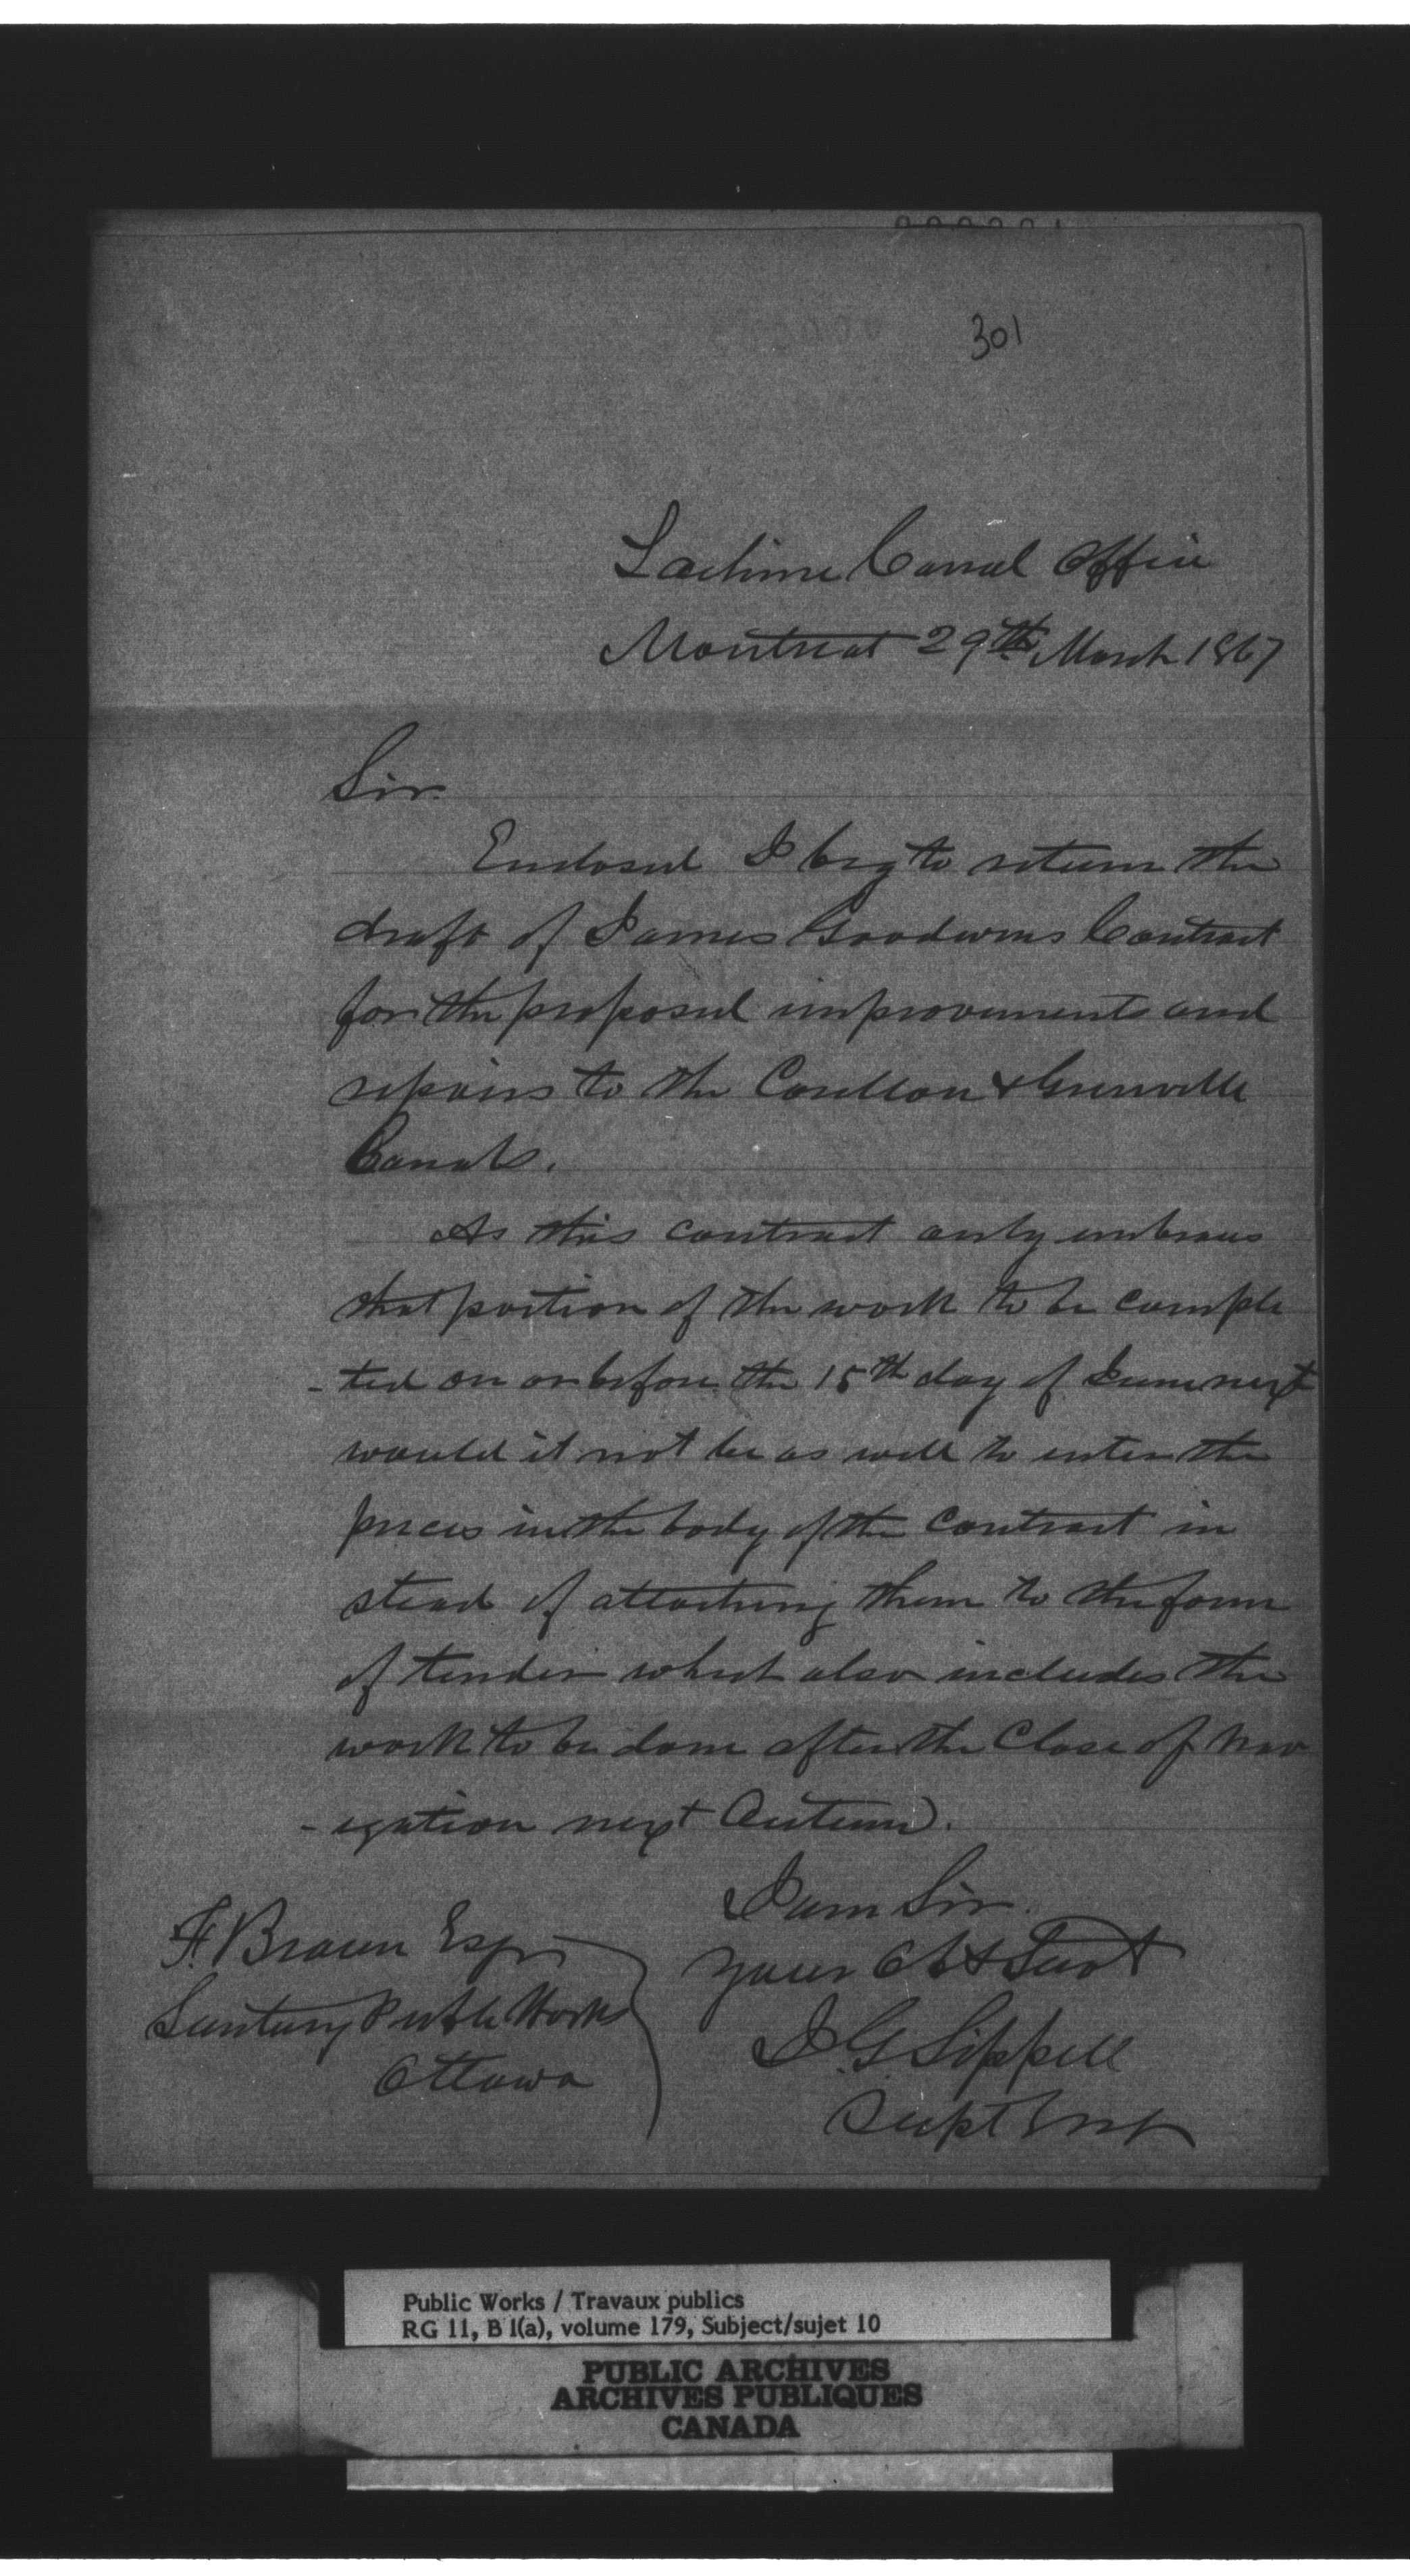 301
Lachine Canal Office
Montreal 29th March 1867
Sir.
Enclosed I beg to return the
draft of James Goodwins Contract
for the proposed improvements and
repairs to the Carillon & Grenville
Canals.
As this contract only embraces
that portion of the work to be comple
- ted on or before the 15th day of June next
would it not be as well to enter the
prices in the body of the contract in
stead of attaching them to the form
of tender which also includes the
work to be done after the Close of nav
- igation next Autumn.
I am Sir.
Your Obt Servt
J.G. Sippell
Supt Eng
F. Braun Esqr
Secretary Public Works
Ottawa
Public Works / Travaux publics
RG 11, B 1(a), volume 179, Subject/sujet 10
PUBLIC ARCHIVES
ARCHIVES PUBLIQUES
CANADA